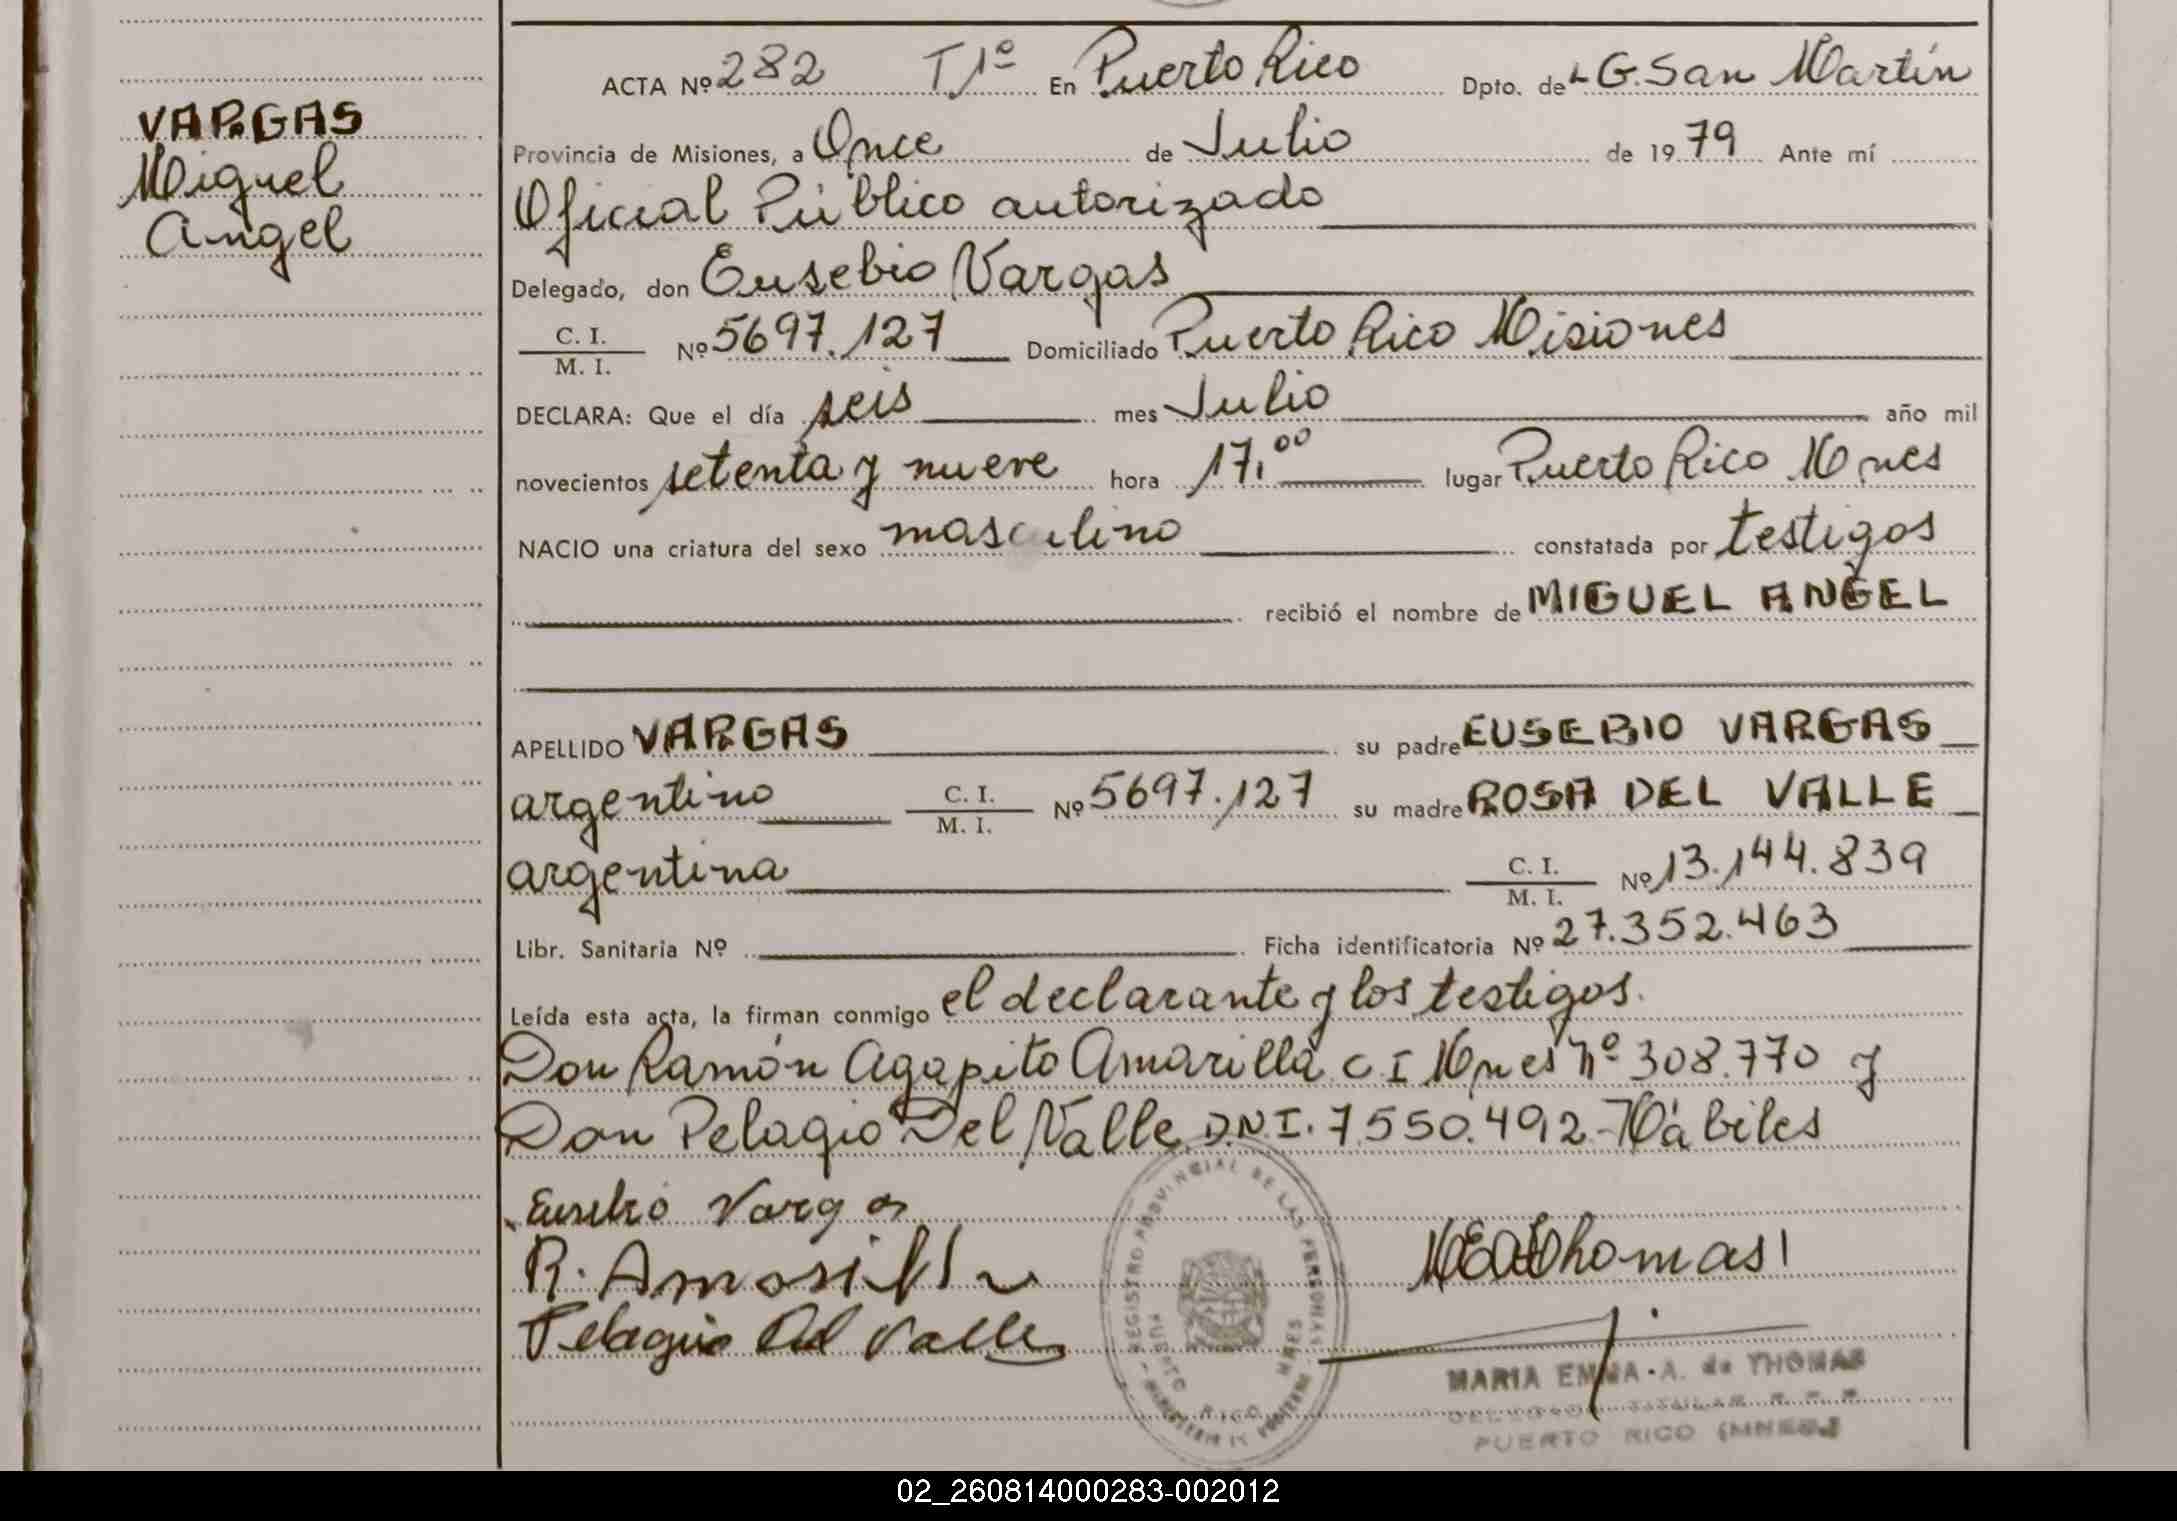 VARGAS
Miguel
Angel
ACTA Nº 282 T 1º En Puerto Rico Dpto. de L G. San Martín
Provincia de Misiones, a Once de Julio de 19 79 Ante mí
Oficial Público autorizado
Delegado, don Eusebio Vargas
C. I.
M. I. Nº 5697.127 Domiciliado Puerto Rico Misiones
DECLARA: Que el día seis mes Julio año mil
novecientos setenta y nueve hora 17,00 lugar Puerto Rico Mnes
NACIO una criatura del sexo masculino constatada por testigos
recibió el nombre de MIGUEL ANGEL
APELLIDO VARGAS su padre EUSEBIO VARGAS
argentino C. I. / M. I. Nº 5697.127 su madre ROSA DEL VALLE
argentina C. I. / M. I. Nº 13.144.839
Libr. Sanitaria Nº Ficha identificatoria Nº 27.352.463
Leída esta acta, la firman conmigo el declarante y los testigos.
Don Ramón Agapito Amarilla C I Mnes nº 308.770 y
Don Pelagio Del Valle D.N.I. 7.550.492 - Hábiles
Eusebio Vargas
R. Amarilla
Pelagio Del Valle
REGISTRO PROVINCIAL DE LAS PERSONAS
PUERTO RICO MNES
MINISTERIO DE GOBIERNO
MEAdThomas
MARIA EMMA A. de THOMAS
DELEGADO TITULAR R. P. P.
PUERTO RICO (MNES.)
02_260814000283-002012